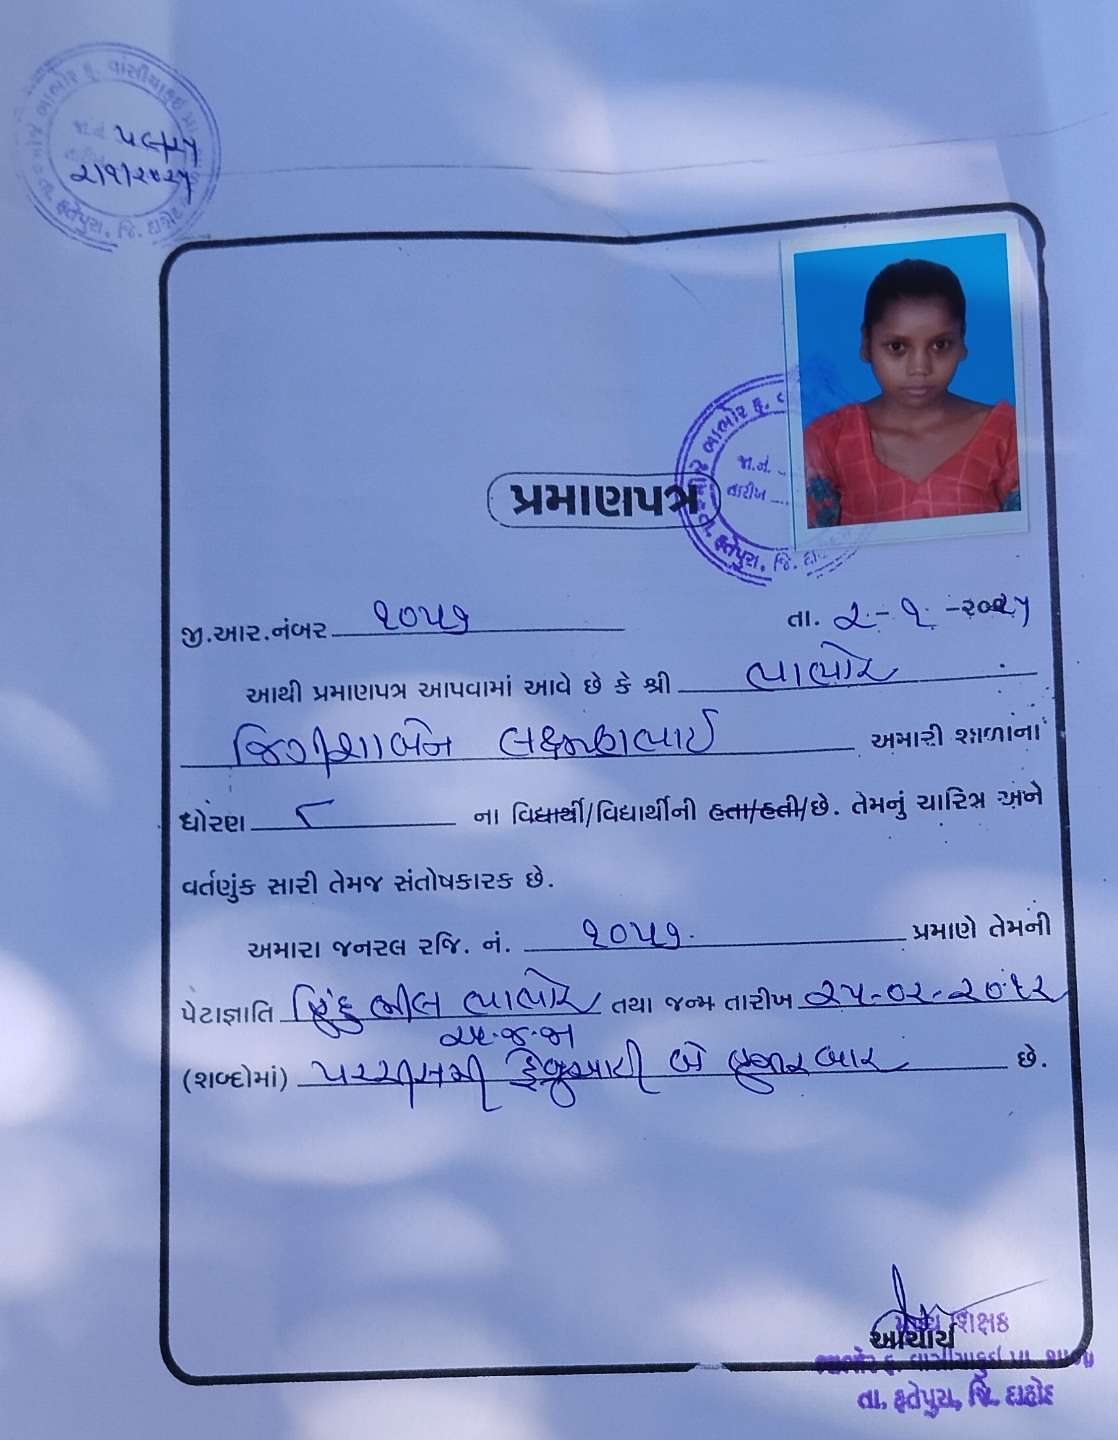 ૨/૧/૨૦૨૫
તા. ફતેપુરા, જિ. દાહોદ
પ્રમાણપત્ર
જા.નં.
તારીખ
તા. ફતેપુરા, જિ.
જી.આર.નંબર ૧૦૫૭ તા. ૨-૧-૨૦૨૫
આથી પ્રમાણપત્ર આપવામાં આવે છે કે શ્રી ભાભોર
જિગીશાબેન લક્ષ્મણભાઈ અમારી શાળાના
ધોરણ ૮ ના વિદ્યાર્થી/વિદ્યાર્થીની હતા/હતી/છે. તેમનું ચારિત્ર અને
વર્તણુંક સારી તેમજ સંતોષકારક છે.
અમારા જનરલ રજિ. નં. ૧૦૫૭ પ્રમાણે તેમની
પેટાજ્ઞાતિ હિંદુ ભીલ ભાભોર તથા જન્મ તારીખ ૨૫-૦૨-૨૦૧૨
અ.જ.જા
(શબ્દોમાં) પચ્ચીસમી ફેબ્રુઆરી બે હજાર બાર છે.
મુખ્ય શિક્ષક
આચાર્ય
ભાભોર ફ. વાંસીયાકુઈ પ્રા. શાળા
તા. ફતેપુરા, જિ. દાહોદ